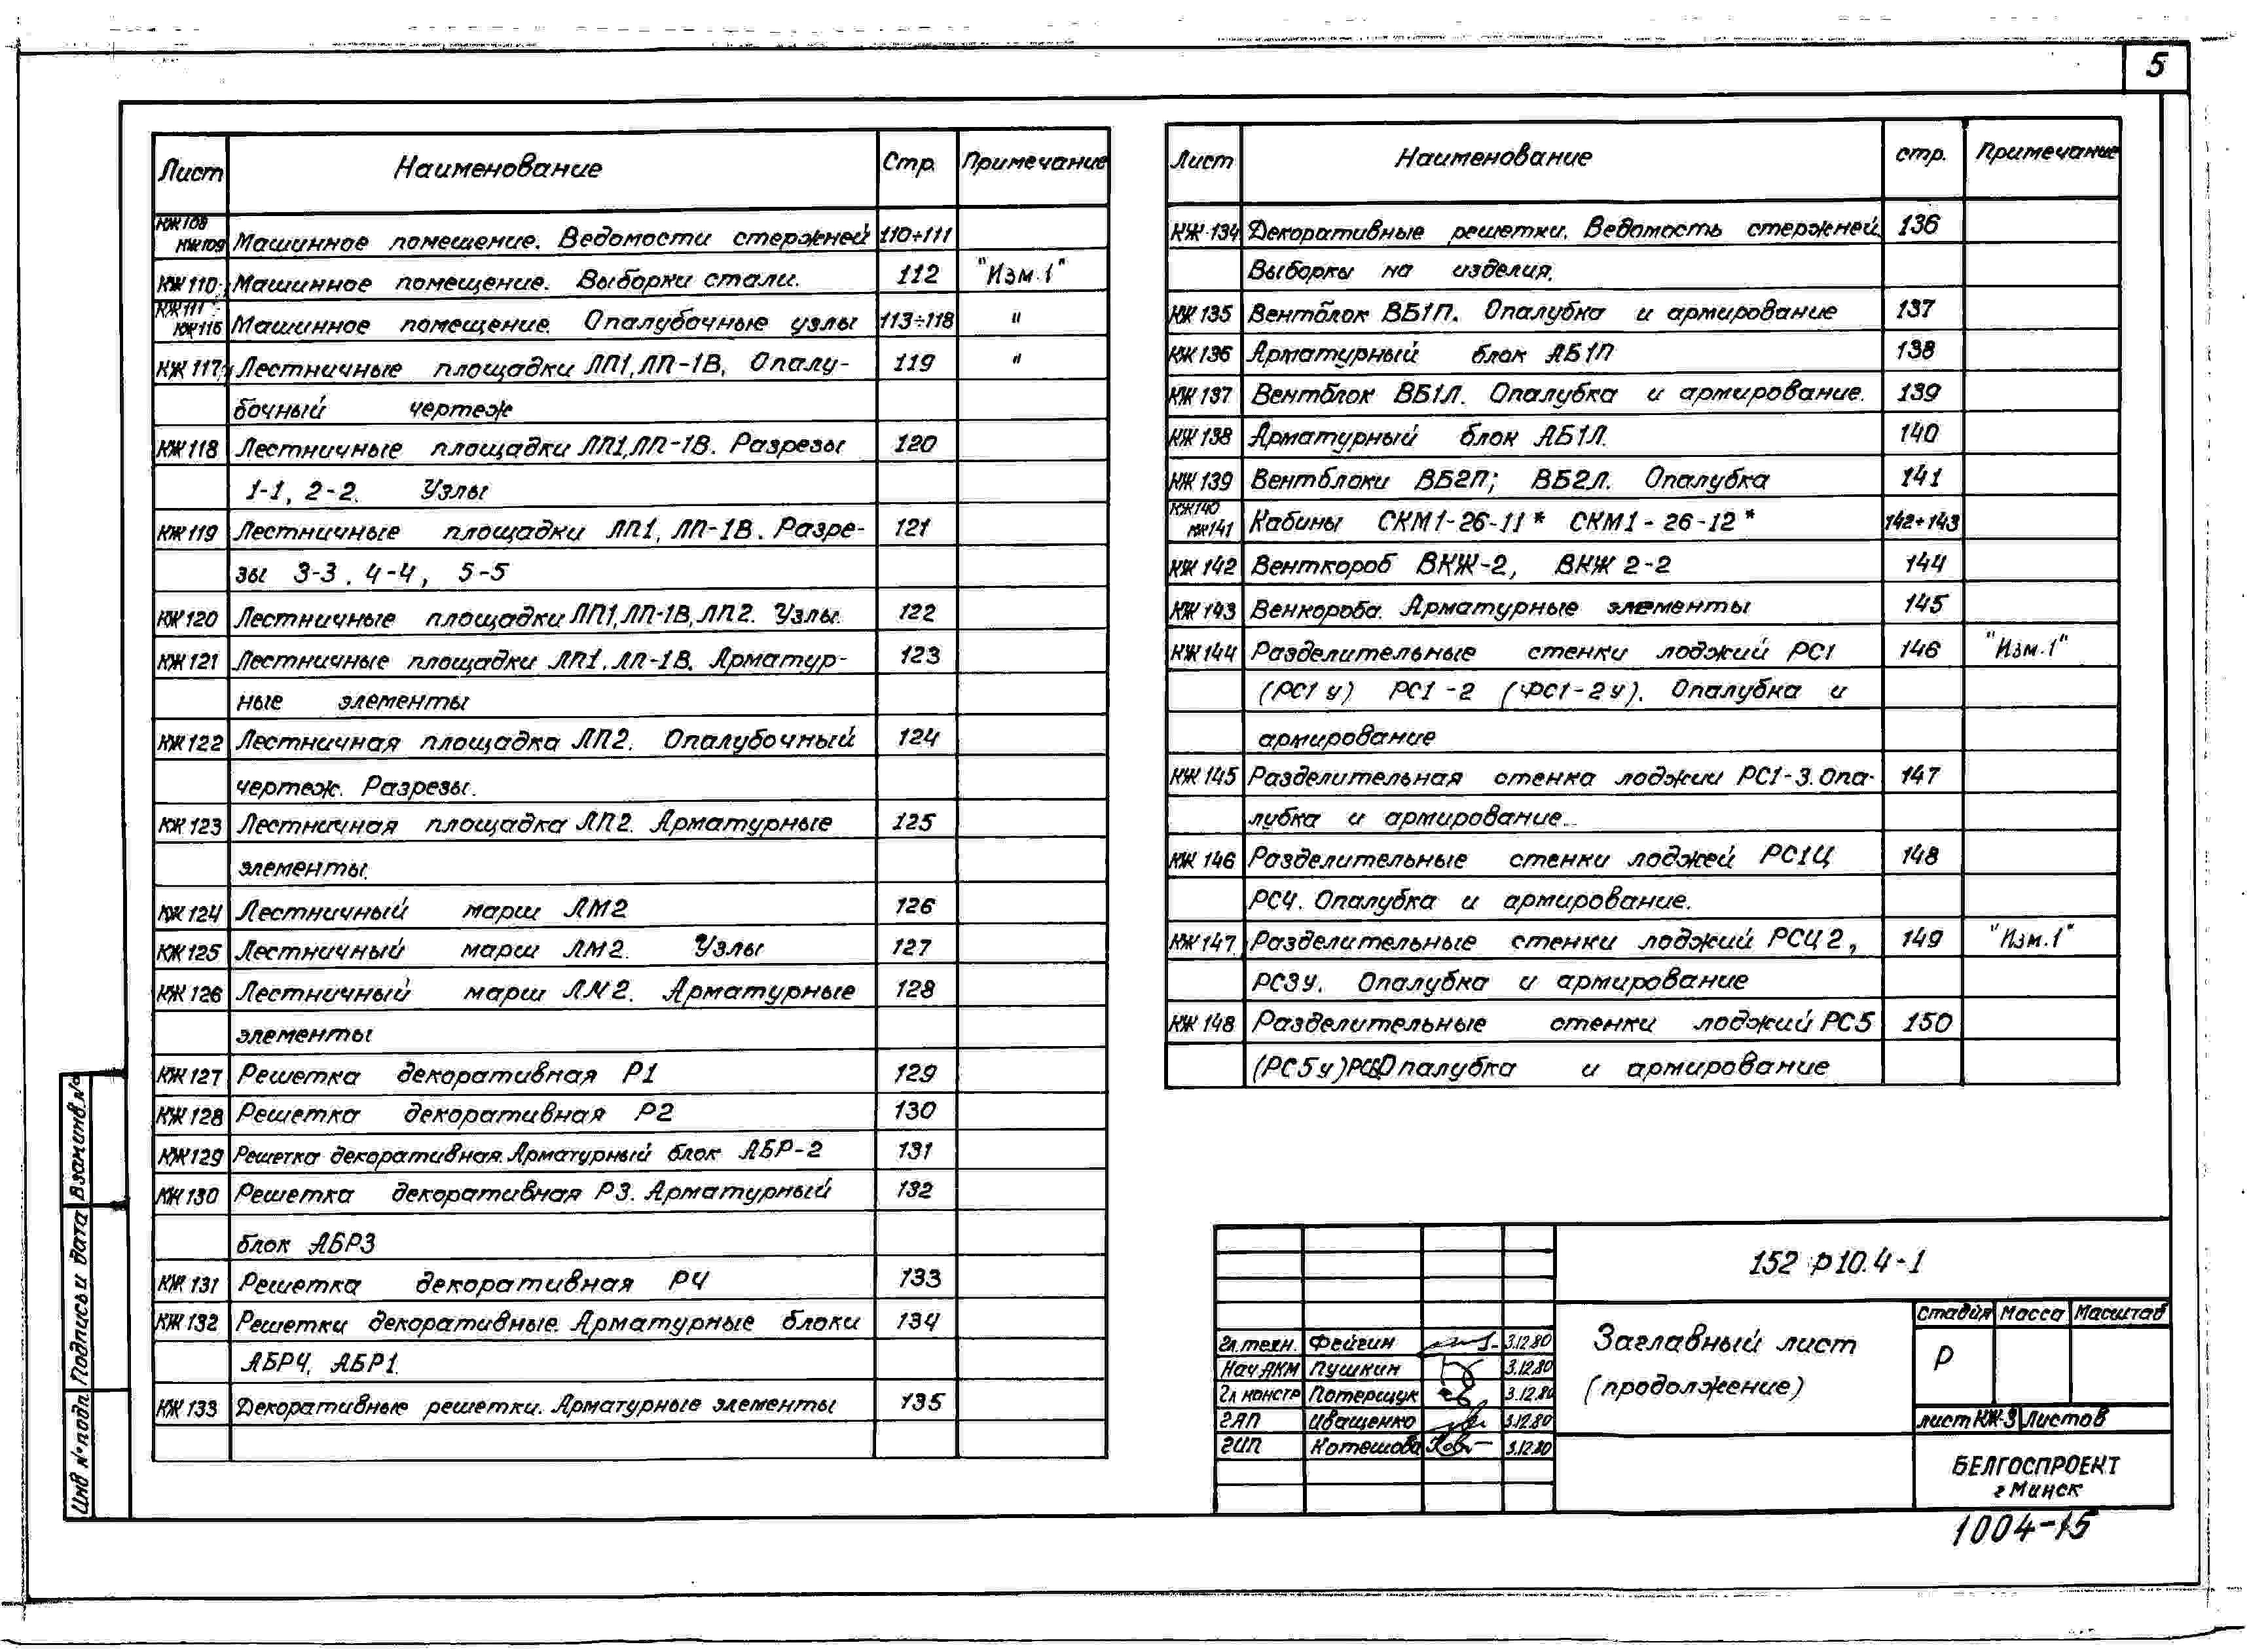 5
Лист Наименование Стр. Примечание
КЖ108
КЖ109 Машинное помещение. Ведомости стержней 110÷111
КЖ110 Машинное помещение. Выборки стали. 112 "Изм.1"
КЖ111÷
КЖ116 Машинное помещение. Опалубочные узлы 113÷118 "
КЖ117 Лестничные площадки ЛП1, ЛП-1В. Опалу- 119 "
бочный чертеж
КЖ118 Лестничные площадки ЛП1, ЛП-1В. Разрезы 120
1-1, 2-2. Узлы
КЖ119 Лестничные площадки ЛП1, ЛП-1В. Разре- 121
зы 3-3, 4-4, 5-5
КЖ120 Лестничные площадки ЛП1, ЛП-1В, ЛП2. Узлы. 122
КЖ121 Лестничные площадки ЛП1, ЛП-1В. Арматур- 123
ные элементы
КЖ122 Лестничная площадка ЛП2. Опалубочный 124
чертеж. Разрезы.
КЖ123 Лестничная площадка ЛП2. Арматурные 125
элементы.
КЖ124 Лестничный марш ЛМ2 126
КЖ125 Лестничный марш ЛМ2. Узлы 127
КЖ126 Лестничный марш ЛМ2. Арматурные 128
элементы
КЖ127 Решетка декоративная Р1 129
КЖ128 Решетка декоративная Р2 130
КЖ129 Решетка декоративная. Арматурный блок АБР-2 131
КЖ130 Решетка декоративная Р3. Арматурный 132
блок АБР3
КЖ131 Решетка декоративная Р4 133
КЖ132 Решетки декоративные. Арматурные блоки 134
АБР4, АБР1.
КЖ133 Декоративные решетки. Арматурные элементы 135
Лист Наименование стр. Примечание
КЖ-134 Декоративные решетки. Ведомость стержней. 136
Выборки на изделия.
КЖ135 Вентблок ВБ1П. Опалубка и армирование 137
КЖ136 Арматурный блок АБ1П 138
КЖ137 Вентблок ВБ1Л. Опалубка и армирование. 139
КЖ138 Арматурный блок АБ1Л. 140
КЖ139 Вентблоки ВБ2П; ВБ2Л. Опалубка 141
КЖ140
КЖ141 Кабины СКМ1-26-11* СКМ1-26-12* 142÷143
КЖ142 Венткороб ВКЖ-2, ВКЖ2-2 144
КЖ143 Венкороба. Арматурные элементы 145
КЖ144 Разделительные стенки лоджий РС1 146 "Изм.1"
(РС1у) РС1-2 (ФС1-2у). Опалубка и
армирование
КЖ145 Разделительная стенка лоджии РС1-3. Опа- 147
лубка и армирование.
КЖ146 Разделительные стенки лоджей РС1Ц 148
РС4. Опалубка и армирование.
КЖ147 Разделительные стенки лоджий РСЦ2, 149 "Изм.1"
РС3у. Опалубка и армирование
КЖ148 Разделительные стенки лоджий РС5 150
(РС5у) Опалубка и армирование
Взам.инв.№
Подпись и дата
Инв № подл.
152 р10.4-1
Гл.техн. Фейгин 3.12.80
Нач.АКМ Пушкин 3.12.80
Гл констр Потерщук 3.12.80
ГАП Иващенко 3.12.80
ГИП Котешова 3.12.80
Заглавный лист
(продолжение)
Стадия Масса Масштаб
Р
лист КЖ-3 Листов
БЕЛГОСПРОЕКТ
г Минск
1004-15